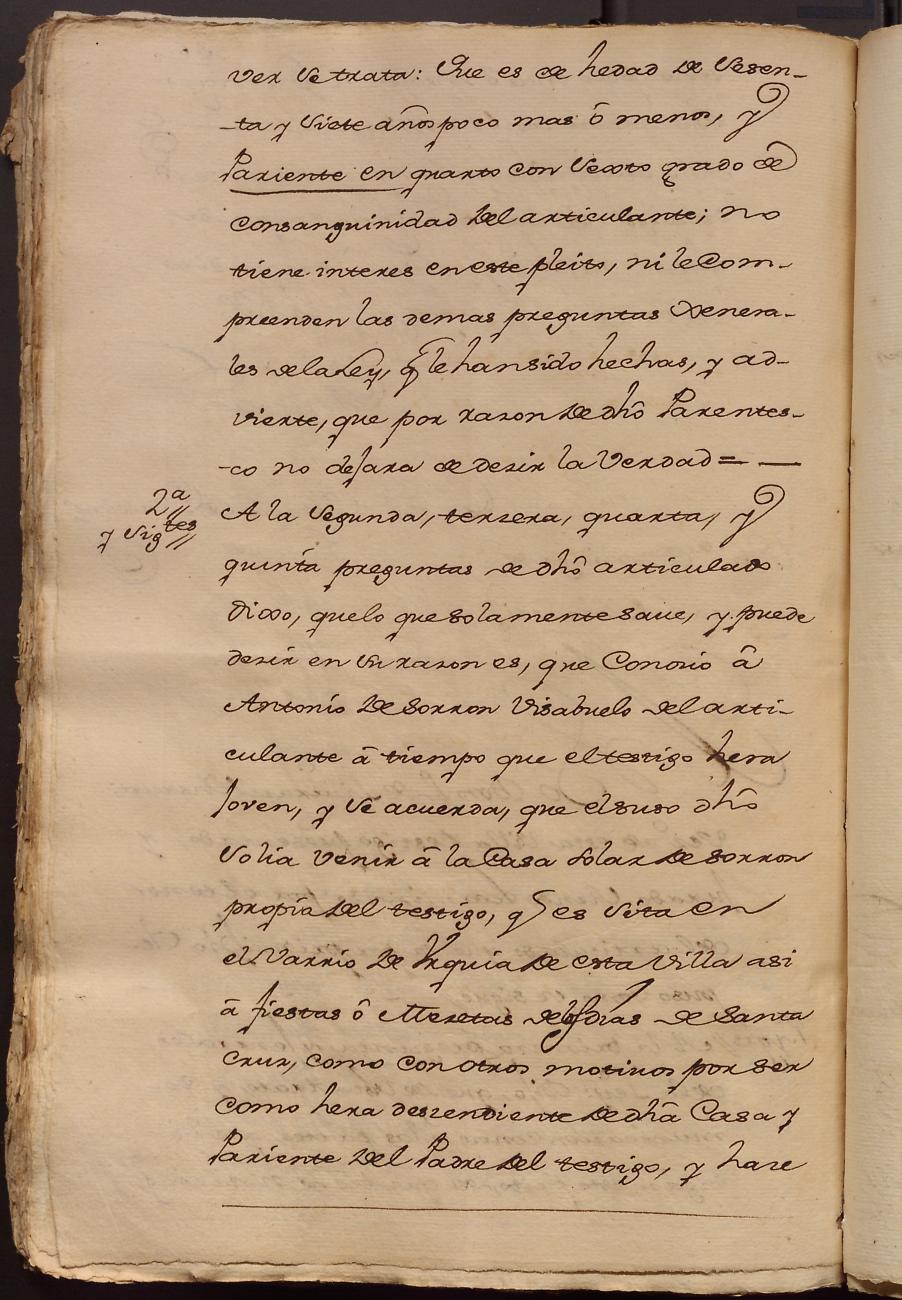 ver se trata: Que es de hedad de Sesen-
-ta y Siete años poco mas ô menos, y
Pariente en quarto con Sexto grado de
consanguinidad del articulante; no
tiene interes en este pleito, ni le Com-
preenden las demas preguntas Genera-
les de la Ley, q̃ le han sido hechas, y ad-
vierte, que por razon de dhô Parentes-
-co no dejara de desir la Verdad = —
2ª
y Sigtes
A la Segunda, tersera, quarta, y
quinta preguntas de dhô articulado
Dixo, que lo que solamente saue, y puede
desir en su razon es, que Conosio â
Antonio de Sorron Visabuelo del arti-
culante â tiempo que el testigo hera
Joven, y se acuerda, que el suso dhô
Solia venir â la Casa Solar de Sorron
propia del testigo, q̃ es Sita en
el Varrio de Urquia de esta Villa asi
â fiestas ô Meretas de los dias de Santa
Cruz, como con otros motivos por ser
como hera desendiente de dhâ Casa y
Pariente del Padre del testigo, y hase